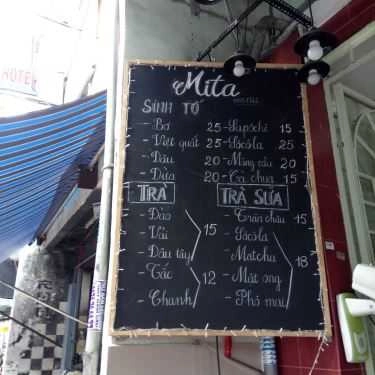 HOTEL
Mita
SINH TỐ
- Bơ 25
- Việt quất 25
- Dâu 20
- Dừa 20
- Sapôchê 15
- Sôcôla 25
- Mãng cầu 20
- Cà chua 15
TRÀ
- Đào
- Vải 15
- Dâu tây
- Tắc 12
- Chanh
TRÀ SỮA
- Trân châu 15
- Sôcôla
- Matcha
- Mật ong 18
- Phô mai